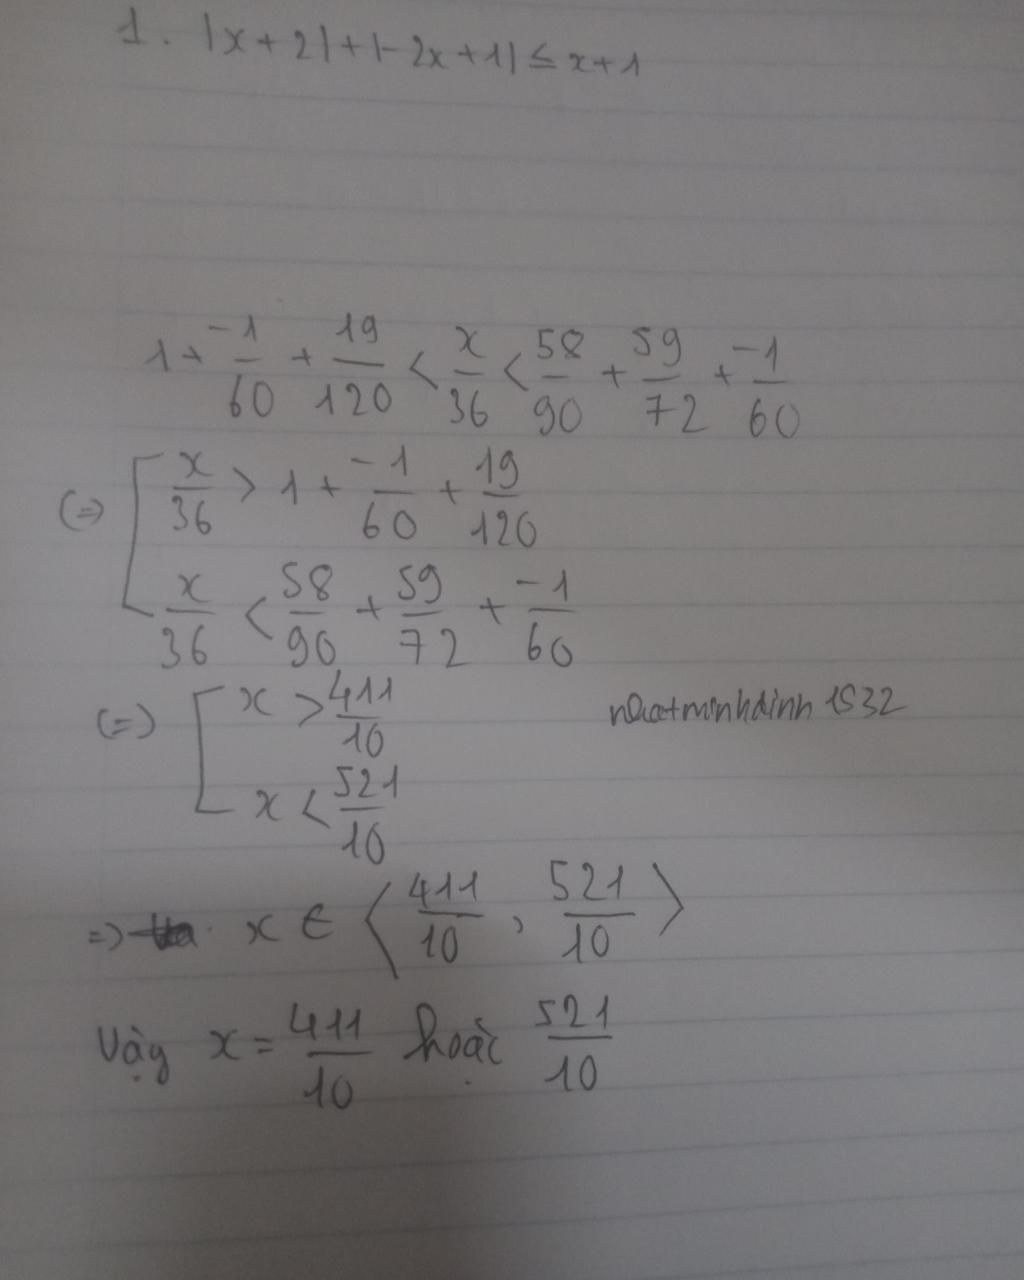 1. |x+2|+|-2x+1| ≤ x+1
1 + -1/60 + 19/120 < x/36 < 58/90 + 59/72 + -1/60
(=) [ x/36 > 1 + -1/60 + 19/120
x/36 < 58/90 + 59/72 + -1/60
(=) [ x > 411/10
x < 521/10
=> x ∈ ⟨411/10, 521/10⟩
Vậy x = 411/10 hoặc 521/10